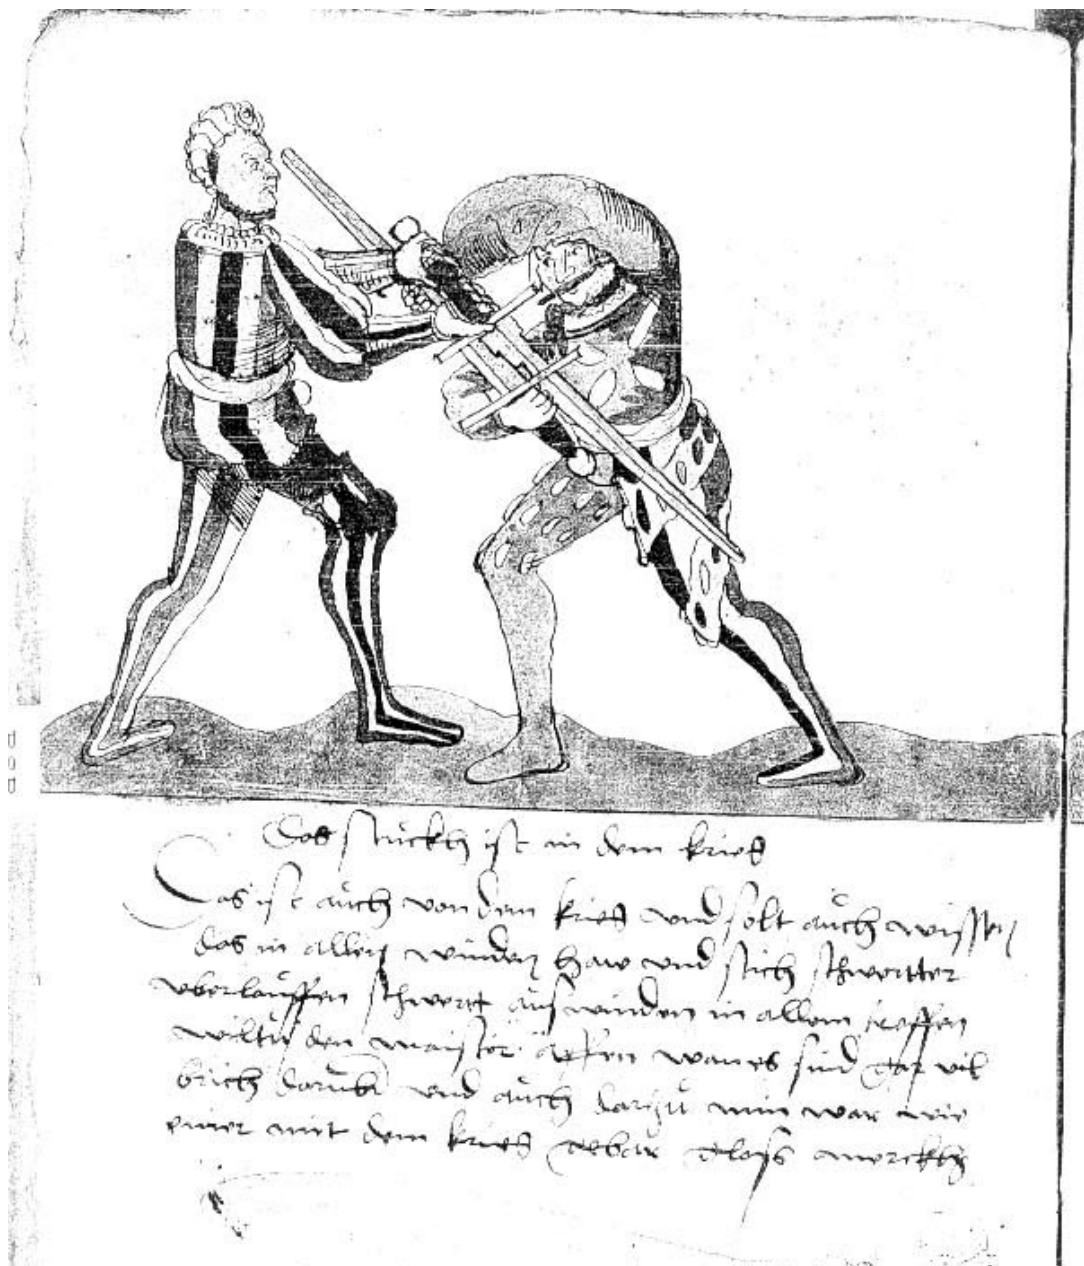 Das stuckh ist in dem krieg
Das ist auch von dem krieg vnd solt auch wissen
das in allen winden haw vnd stich schwertter
vberlauffen schwert aus winden in allem treffen
wiltu den maister äffen wan es sind gar vil
brich darüber vnd auch darzu nim war wie
einer mit dem krieg gebar gloss merckh